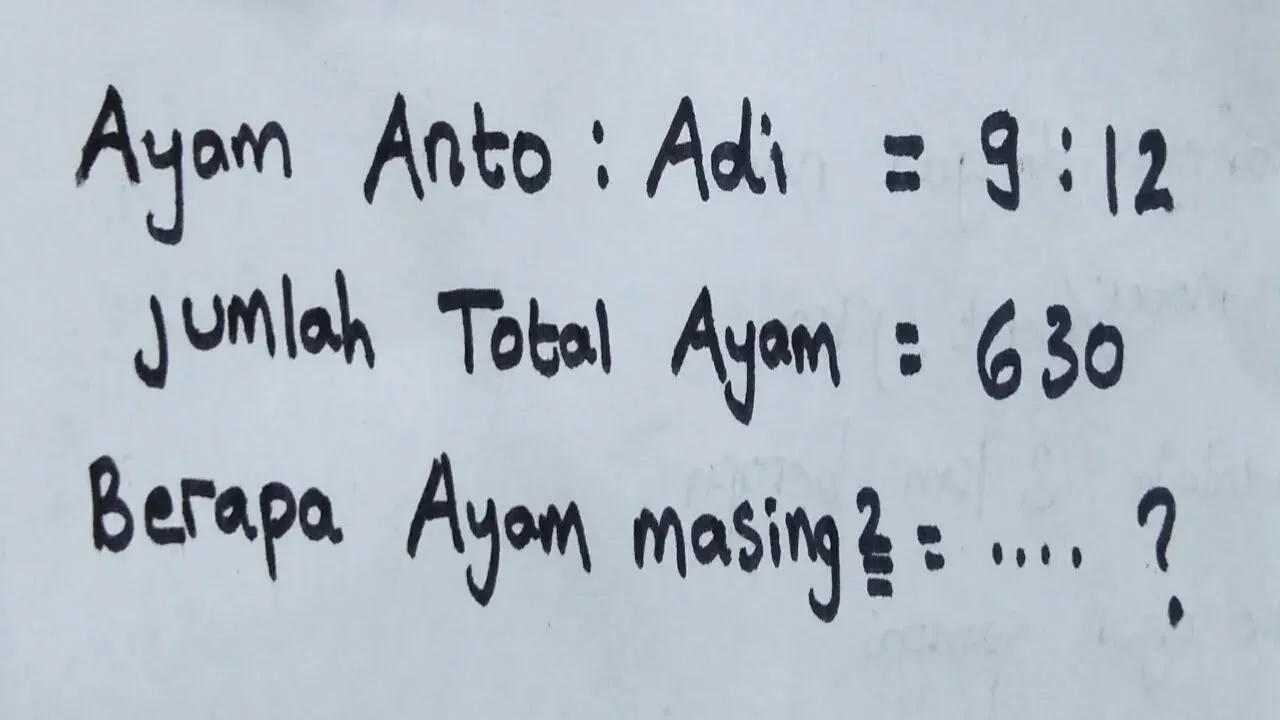 Ayam Anto : Adi = 9 : 12
Jumlah Total Ayam = 630
Berapa Ayam masing2 = .... ?